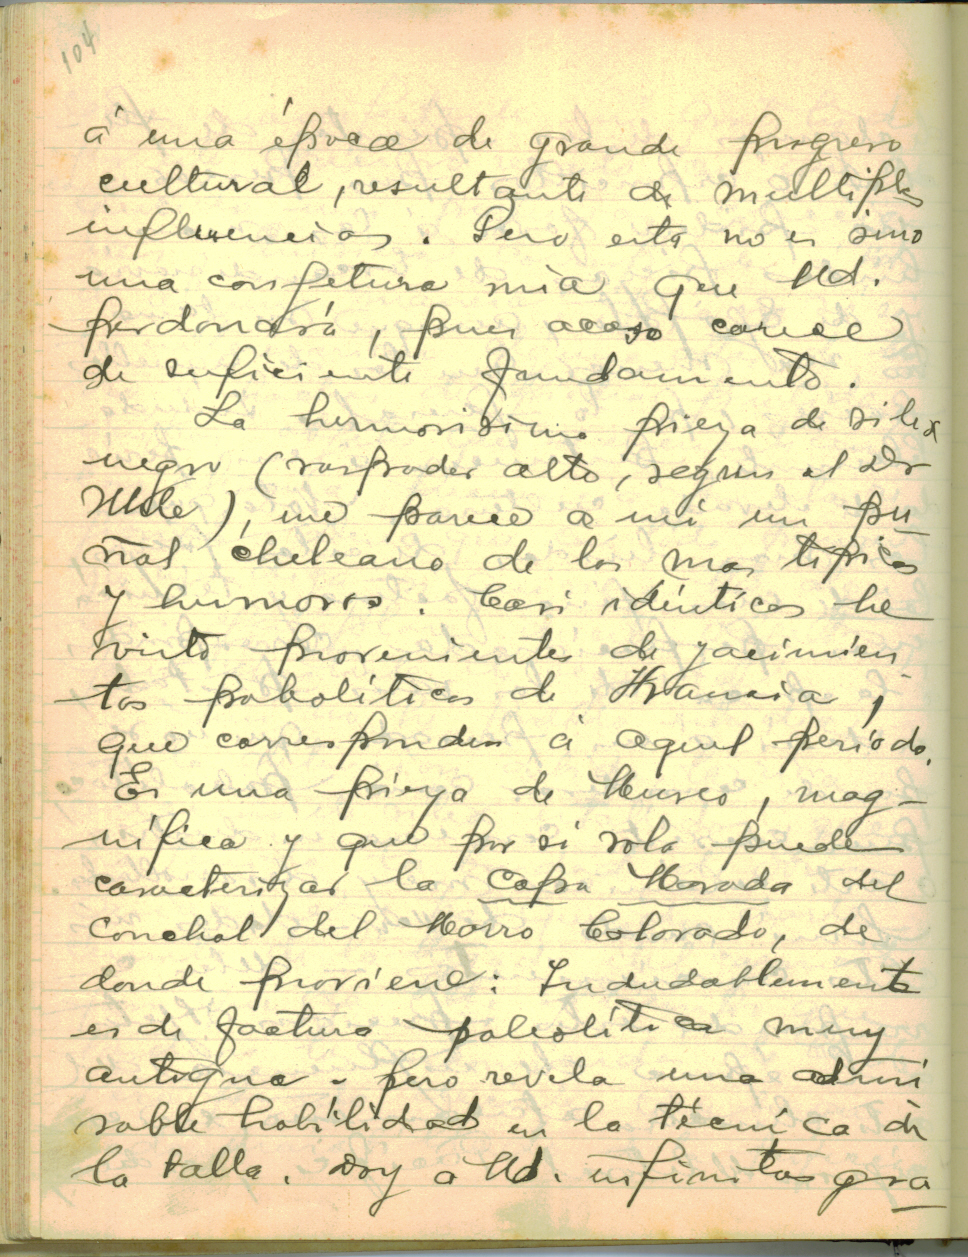 104
á una época de grande progreso
cultural, resultante de multiples
influencias. Pero esta no es sino
una conjetura mia que Ud.
perdonará, pues acaso carece
de suficiente fundamento.
La hermosisima pieza de silex
negro (raspador alto, segun el Dr
Uhle), me parece a mi un pu
ñal cheleano de los mas tipicos
y hermosos. Casi idénticos he
visto provenientes de yacimien
tos paleolíticos de Francia,
que corresponden á aquel período.
Es una pieza de Museo, mag-
nífica y que por si sola puede
caracterizar la Capa Morada del
Conchal del Morro Colorado, de
donde proviene: Indudablemente
es de factura paleolítica muy
antigua. pero revela una admi
rable habilidad en la técnica de
la talla. Doy a Ud. infinitas gra